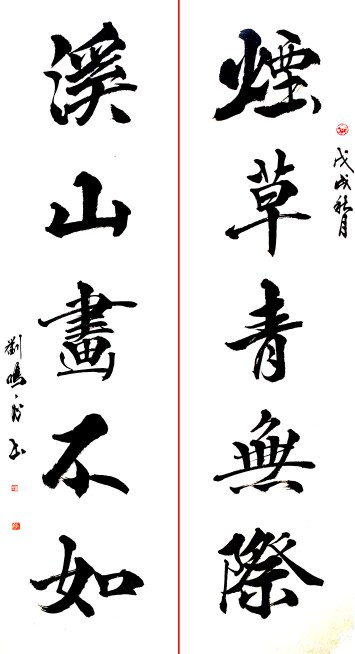 戊戌秋月
煙草青無際
溪山畫不如